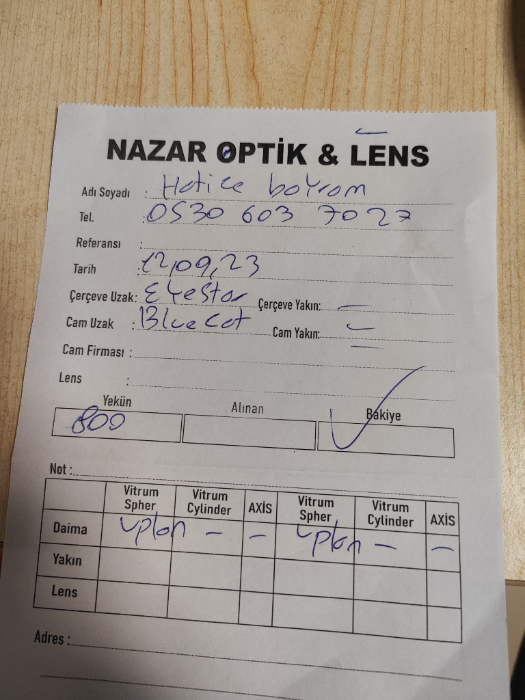 NAZAR OPTİK & LENS
Adı Soyadı : Hatice bayram
Tel. : 0530 603 7027
Referansı :
Tarih : 12,09,23
Çerçeve Uzak: EyeStar Çerçeve Yakın: —
Cam Uzak : Blue Cat Cam Yakın: —
Cam Firması : —
Lens :
Yekün Alınan Bakiye
800
Not :
Vitrum Spher Vitrum Cylinder AXİS Vitrum Spher Vitrum Cylinder AXİS
Daima plan — — plan — —
Yakın
Lens
Adres :